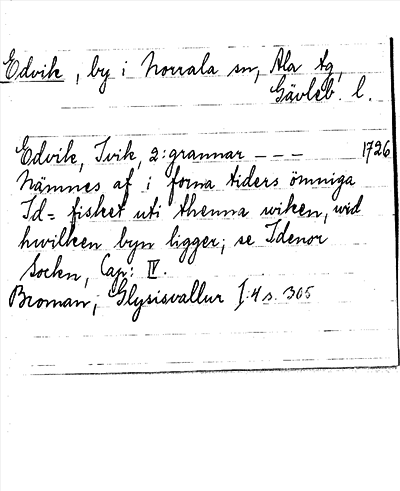 Edvik, by i Norrala sn, Ala tg,
Gävleb. l.
Edvik, Ivik, 2: grannar - - - 1726
Nämnes af i forna tiders ömniga
Id= fisket uti thenna wiken, wid
hwilken byn ligger; se Idenor
Sockn, Cap: IV.
Broman, Glysisvallur I:4 s. 305